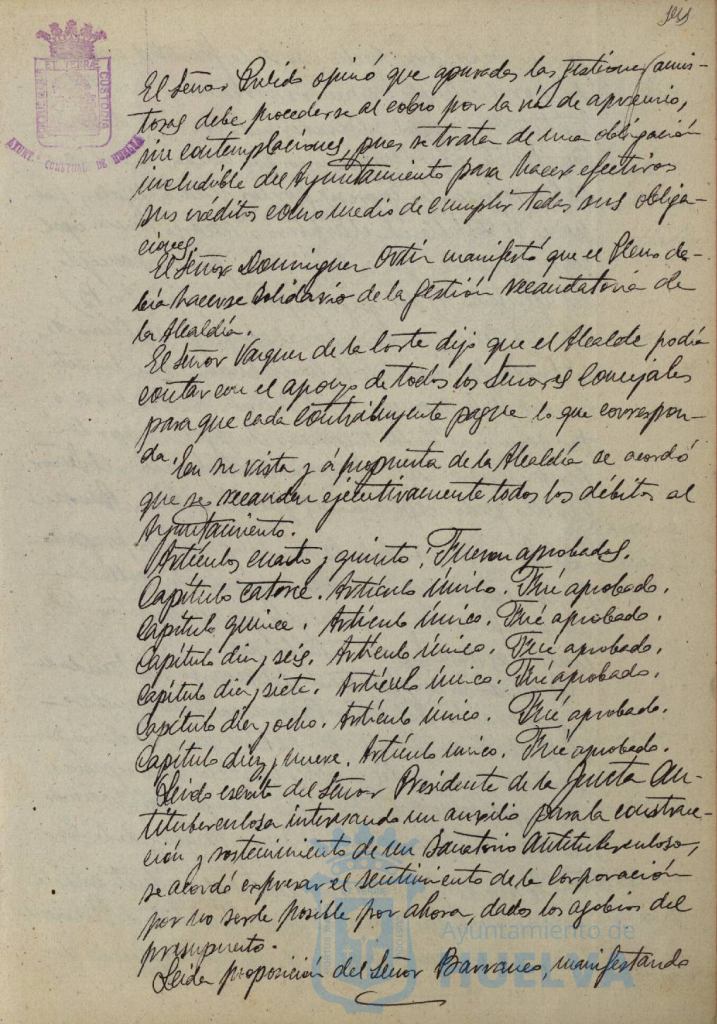 El Señor Pulido opinó que apuradas las gestiones amis-
tosas debe procederse al cobro por la vía de apremio,
sin contemplaciones, pues se trata de una obligación
includible del Ayuntamiento para hacer efectivos
sus créditos como medio de cumplir todas sus obliga-
ciones.
El Señor Dominguez Ortiz manifestó que el Pleno de-
bía hacerse solidario de la gestión recaudatoria de
la Alcaldía.
El Señor Vazquez de la Corte dijo que el Alcalde podía
contar con el apoyo de todos los Señores Concejales
para que cada contribuyente pague lo que correspon-
da.
En su vista y á propuesta de la Alcaldía se acordó
que se recauden ejecutivamente todos los débitos al
Ayuntamiento.
Artículos cuarto y quinto. Fueron aprobados.
Capítulo catorce. Artículo único. Fué aprobado.
Capítulo quince. Artículo único. Fué aprobado.
Capítulo diez y seis. Artículo único. Fué aprobado.
Capítulo diez y siete. Artículo único. Fué aprobado.
Capítulo diez y ocho. Artículo único. Fué aprobado.
Capítulo diez y nueve. Artículo unico. Fué aprobado.
Leido escrito del Señor Presidente de la Junta An-
tituberculosa interesando un auxilio para la construc-
ción y sostenimiento de un Sanatorio Antituberculoso,
se acordó expresar el sentimiento de la Corporación
por no serle posible por ahora, dados los agobios del
presupuesto.
Leida proposición del Señor Barranco, manifestando
AYUNT. CONSTNAL DE HUELVA
Ayuntamiento de
HUELVA